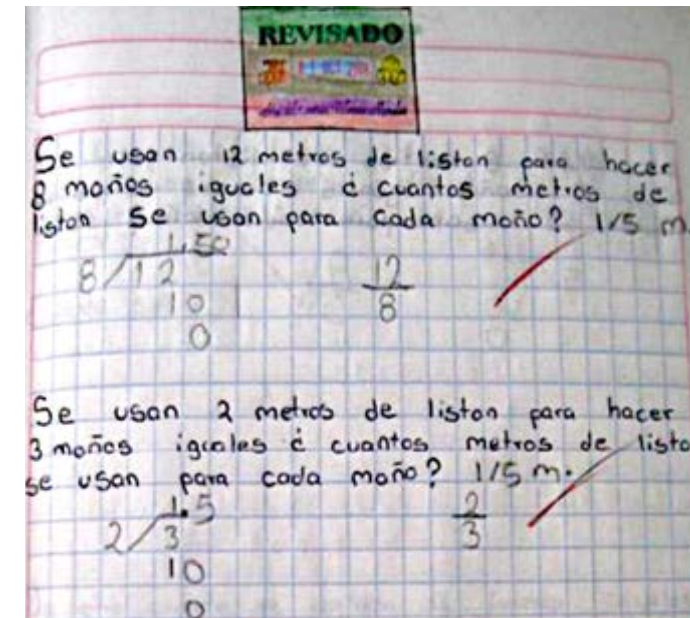 REVISADO
Se usan 12 metros de liston para hacer
8 moños iguales ¿ cuantos metros de
liston se usan para cada moño? 1/5 m.
1.50
8/12
10
0
12
8
Se usan 2 metros de liston para hacer
3 moños iguales ¿ cuantos metros de listo
se usan para cada moño? 1/5 m.
1.5
2/3
10
0
2
3